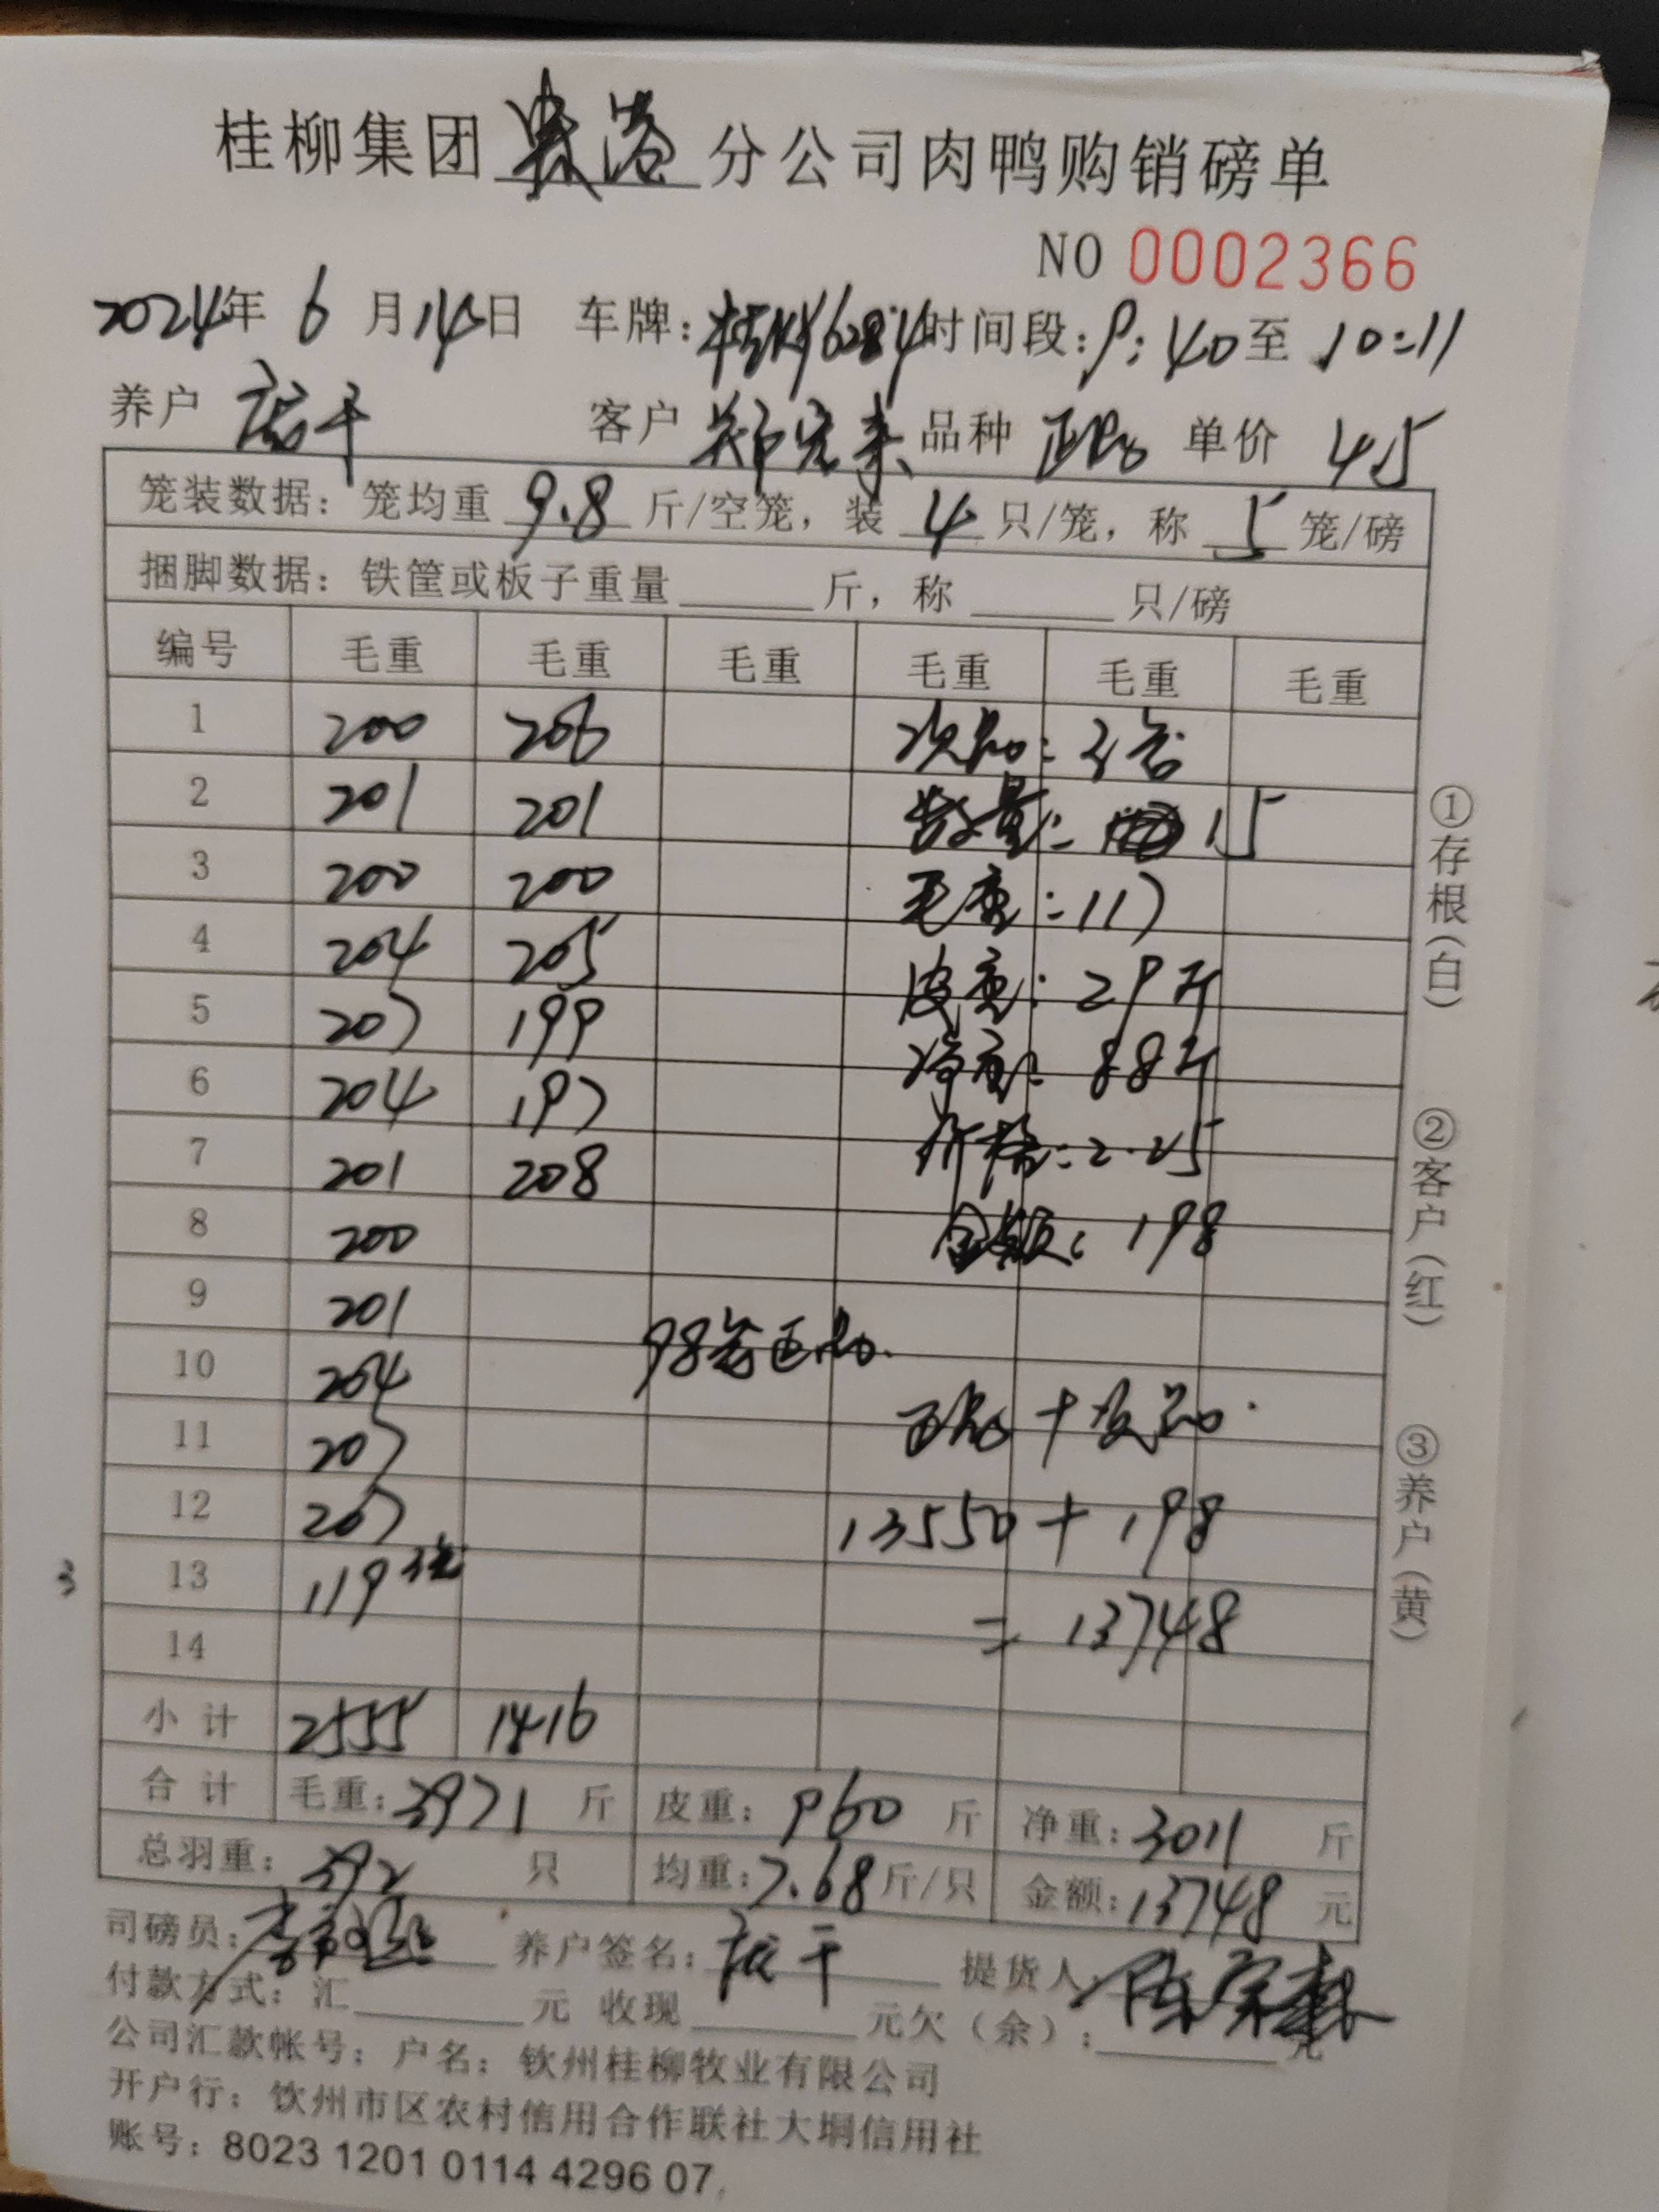 桂柳集团贵港分公司肉鸭购销磅单
NO 0002366
2024年 6 月 14日 车牌: 时间段: 9:40 至 10:11
养户 客户 品种 正品 单价 4.5
笼装数据: 笼均重 9.8 斤/空笼, 装 4 只/笼, 称 5 笼/磅
捆脚数据: 铁筐或板子重量 斤, 称 只/磅
编号 毛重 毛重 毛重 毛重 毛重 毛重
1 200 206 次品: 3笼
2 201 201 数量: 15
3 200 200 毛重: 117
4 204 205 皮重: 29斤
5 207 199 净重: 88斤
6 204 197 价格: 2.25
7 201 208 金额: 198
8 200
9 201 98笼正品.
10 204 正品 + 次品.
11 207
12 207 13550 + 198
3 13 119 3笼 = 13748
14
小计 2555 1416
合计 毛重: 3971 斤 皮重: 960 斤 净重: 3011 斤
总羽重: 392 只 均重: 7.68 斤/只 金额: 13748 元
司磅员: 养户签名: 提货人:
付款方式: 汇 元 收现 元欠(余): 元
公司汇款帐号: 户名: 钦州桂柳牧业有限公司
开户行: 钦州市区农村信用合作联社大垌信用社
账号: 8023 1201 0114 4296 07
①存根(白)
②客户(红)
③养户(黄)